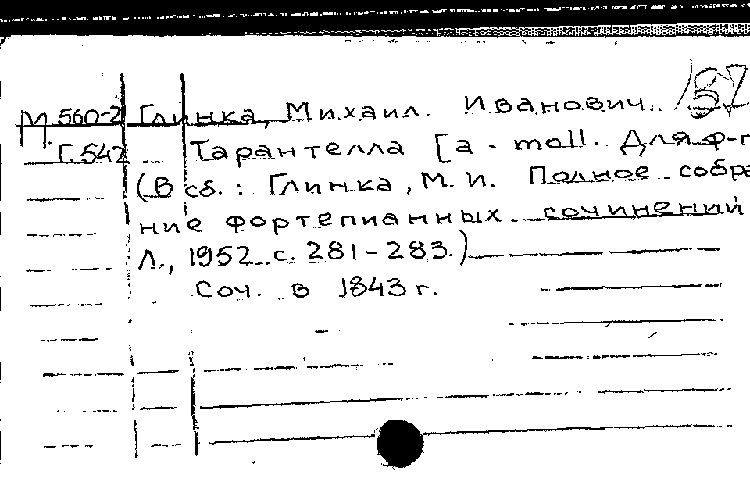 М 560-2 Глинка, Михаил Иванович.
Г.542 Тарантелла [a-moll. Для ф-п
(В сб.: Глинка, М.И. Полное собра
ние фортепианных сочинений
Л., 1952. с. 281-283.)
Соч. в 1843 г.